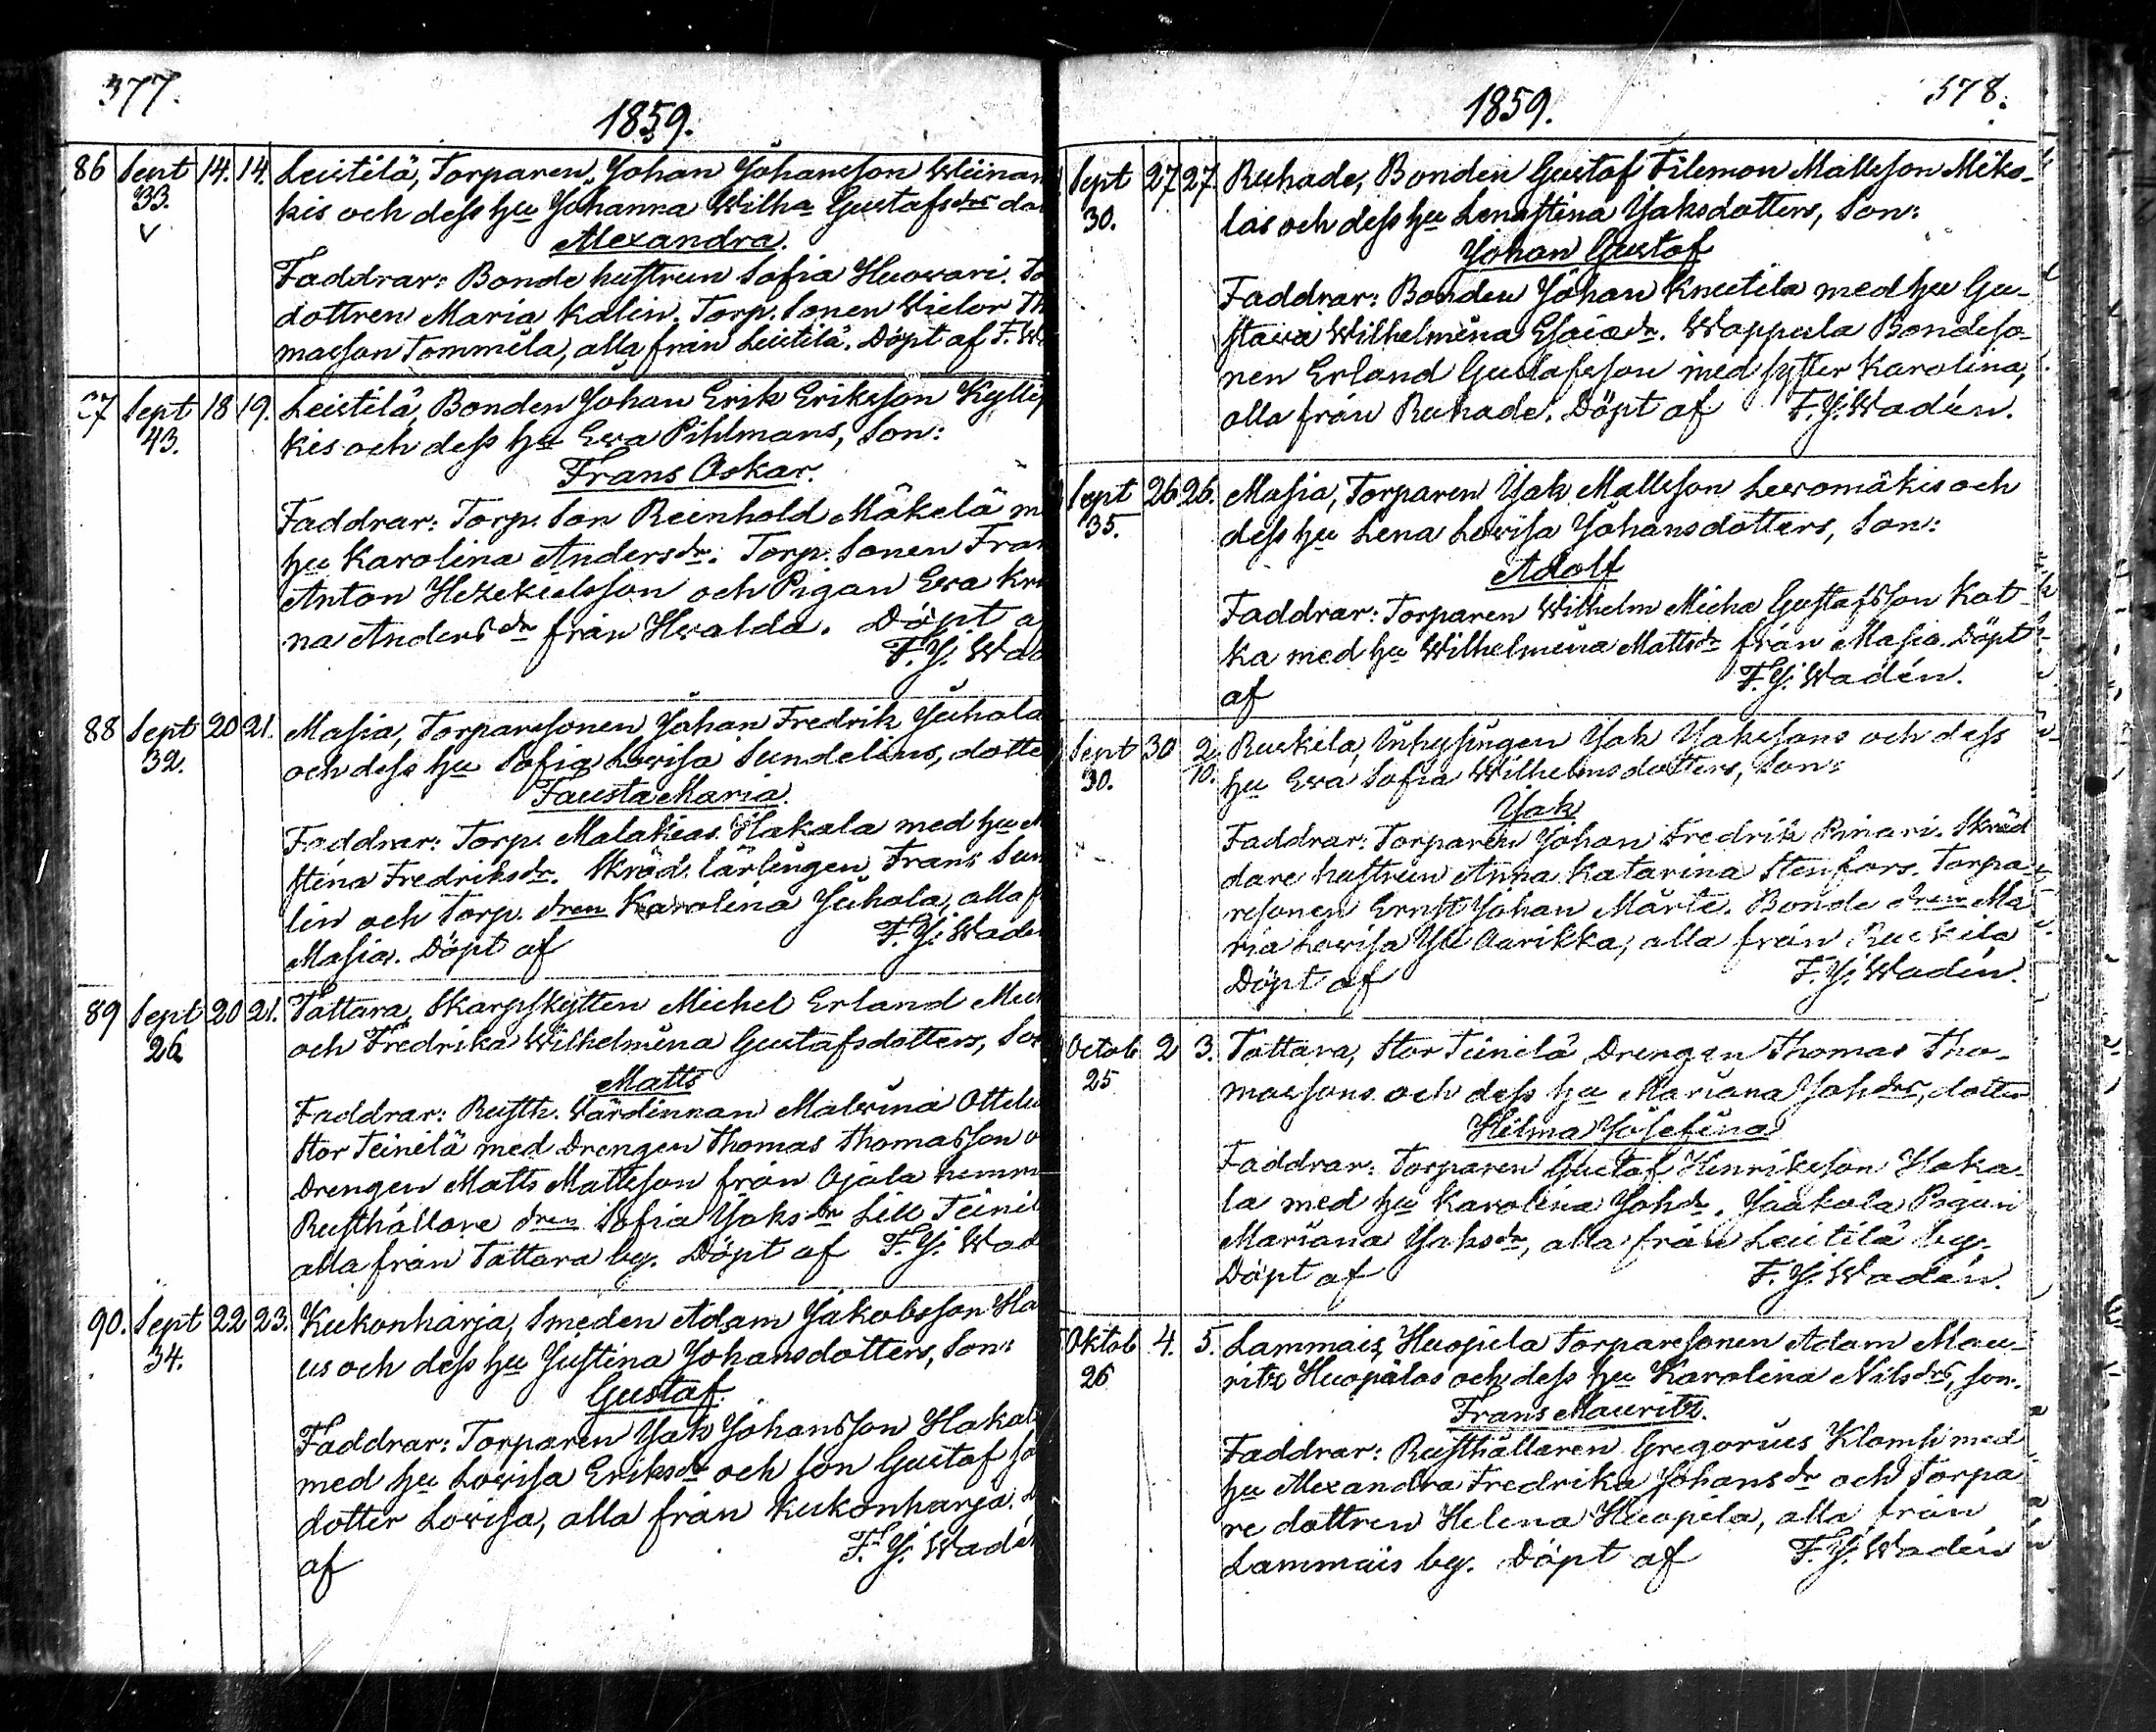 377.
1859.
86 Sept 14. 14. Leistilä, Torparen Johan Johansson Wiinan
33. kis och dess hu Johanna Wilha Gustafsdrs dot
v Alexandra.
Faddrar: Bonde hustrun Sofia Huovari. To
dottren Maria Kalin. Torp. Sonen Victor Th
masson Tommila, alla från Leistilä. Döpt af F. W
87 Sept 18 19. Leistilä, Bonden Johan Erik Eriksson Kylli
43. kis och dess hu Ewa Pihlmans, Son:
Frans Oskar.
Faddrar: Torp. Son Reinhold Mäkelä m
hu Karolina Andersdr. Torp. Sonen Fran
Anton Hezekielsson och Pigan Ewa Kri
na Andersdr från Hvalda. Döpt a
F. J. Wad
88 Sept 20 21. Masia, Torparesonen Johan Fredrik Juhola
32. och dess hu Sofia Lovisa Sundelins, dotte
Fausta Maria.
Faddrar: Torp. Malakias Hakala med hu
stina Fredriksdr. Skräd. lärlingen Frans Sun
lin och Torp. dren Karolina Juhola, alla f
Masia. Döpt af F. J. Wadé
89 Sept 20 21. Tattara, Skarpskytten Michel Erland
26 och Fredrika Wilhelmina Gustafsdotters, So
Matts
Faddrar: Rusth. Wärdinnan Malvina Ottili
Stor Teinilä med Drengen Thomas Thomasson o
Drengen Matts Mattsson från Ojala hemm
Rusthållare dren Sofia Jaksdr Lill Teinil
alla från Tattara by. Döpt af F. J. Wad
90. Sept 22 23. Kukonharja, Smeden Adam Jakobsson Ha
34. us och dess hu Justina Johansdotters, Son:
Gustaf.
Faddrar: Torparen Jak Johansson Hakal
med hu Lovisa Eriksdr och son Gustaf
dotter Lovisa, alla från Kukonharja.
af F. J. Wadén
378.
1859.
Sept 27 27. Ruhade, Bonden Gustaf Filemon Mattsson Miko-
30. las och dess hu Lenastina Jaksdotters, Son:
Johan Gustaf
Faddrar: Bonden Johan Knutila med hu Gu-
stava Wilhelmina Esaiædr. Wappula Bondeso-
nen Erland Gustafsson med syster Karolina,
alla från Ruhade. Döpt af F. J. Wadén.
Sept 26 26. Masia, Torparen Jak Mattsson Levomäkis och
35. dess hu Lena Lovisa Johansdotters, Son:
Adolf
Faddrar: Torparen Wilhelm Micha Gustafsson Kot-
ka med hu Wilhelmina Mattsdr från Masia. Döpt
af F. J. Wadén.
Sept 30 2/10. Ruskila, Inhysingen Jak Jakssons och dess
30. hu Ewa Sofia Wilhelmsdotters, Son:
Jak
Faddrar: Torparen Johan Fredrik Pinari. Skräd
dare hustrun Anna Katarina Stenfors. Torpa-
resonen Ernst Johan Märte. Bonde dren Ma
ria Lovisa Yli Aarikka, alla från Ruskila
Döpt af F. J. Wadén.
Octob 2 3. Tattara, Stor Teinilä Drengen Thomas Tho-
25 massons och dess hu Mariana Johdrs, dotter
Hilma Josefina
Faddrar: Torparen Gustaf Henriksson Haka-
la med hu Karolina Johdr. Jaakola Pigan
Mariana Jaksdr, alla från Leistilä by.
Döpt af F. J. Wadén.
Oktob 4. 5. Lammais, Huopila Torparesonen Adam Mau-
26 ritz Huopilas och dess hu Karolina Nilsdrs, son.
Frans Mauritz.
Faddrar: Rusthållaren Gregorius Klomli med
hu Alexandra Fredrika Johansdr och Torpa
re dottren Helena Huopila, alla från
Lammais by. Döpt af F. J. Wadén